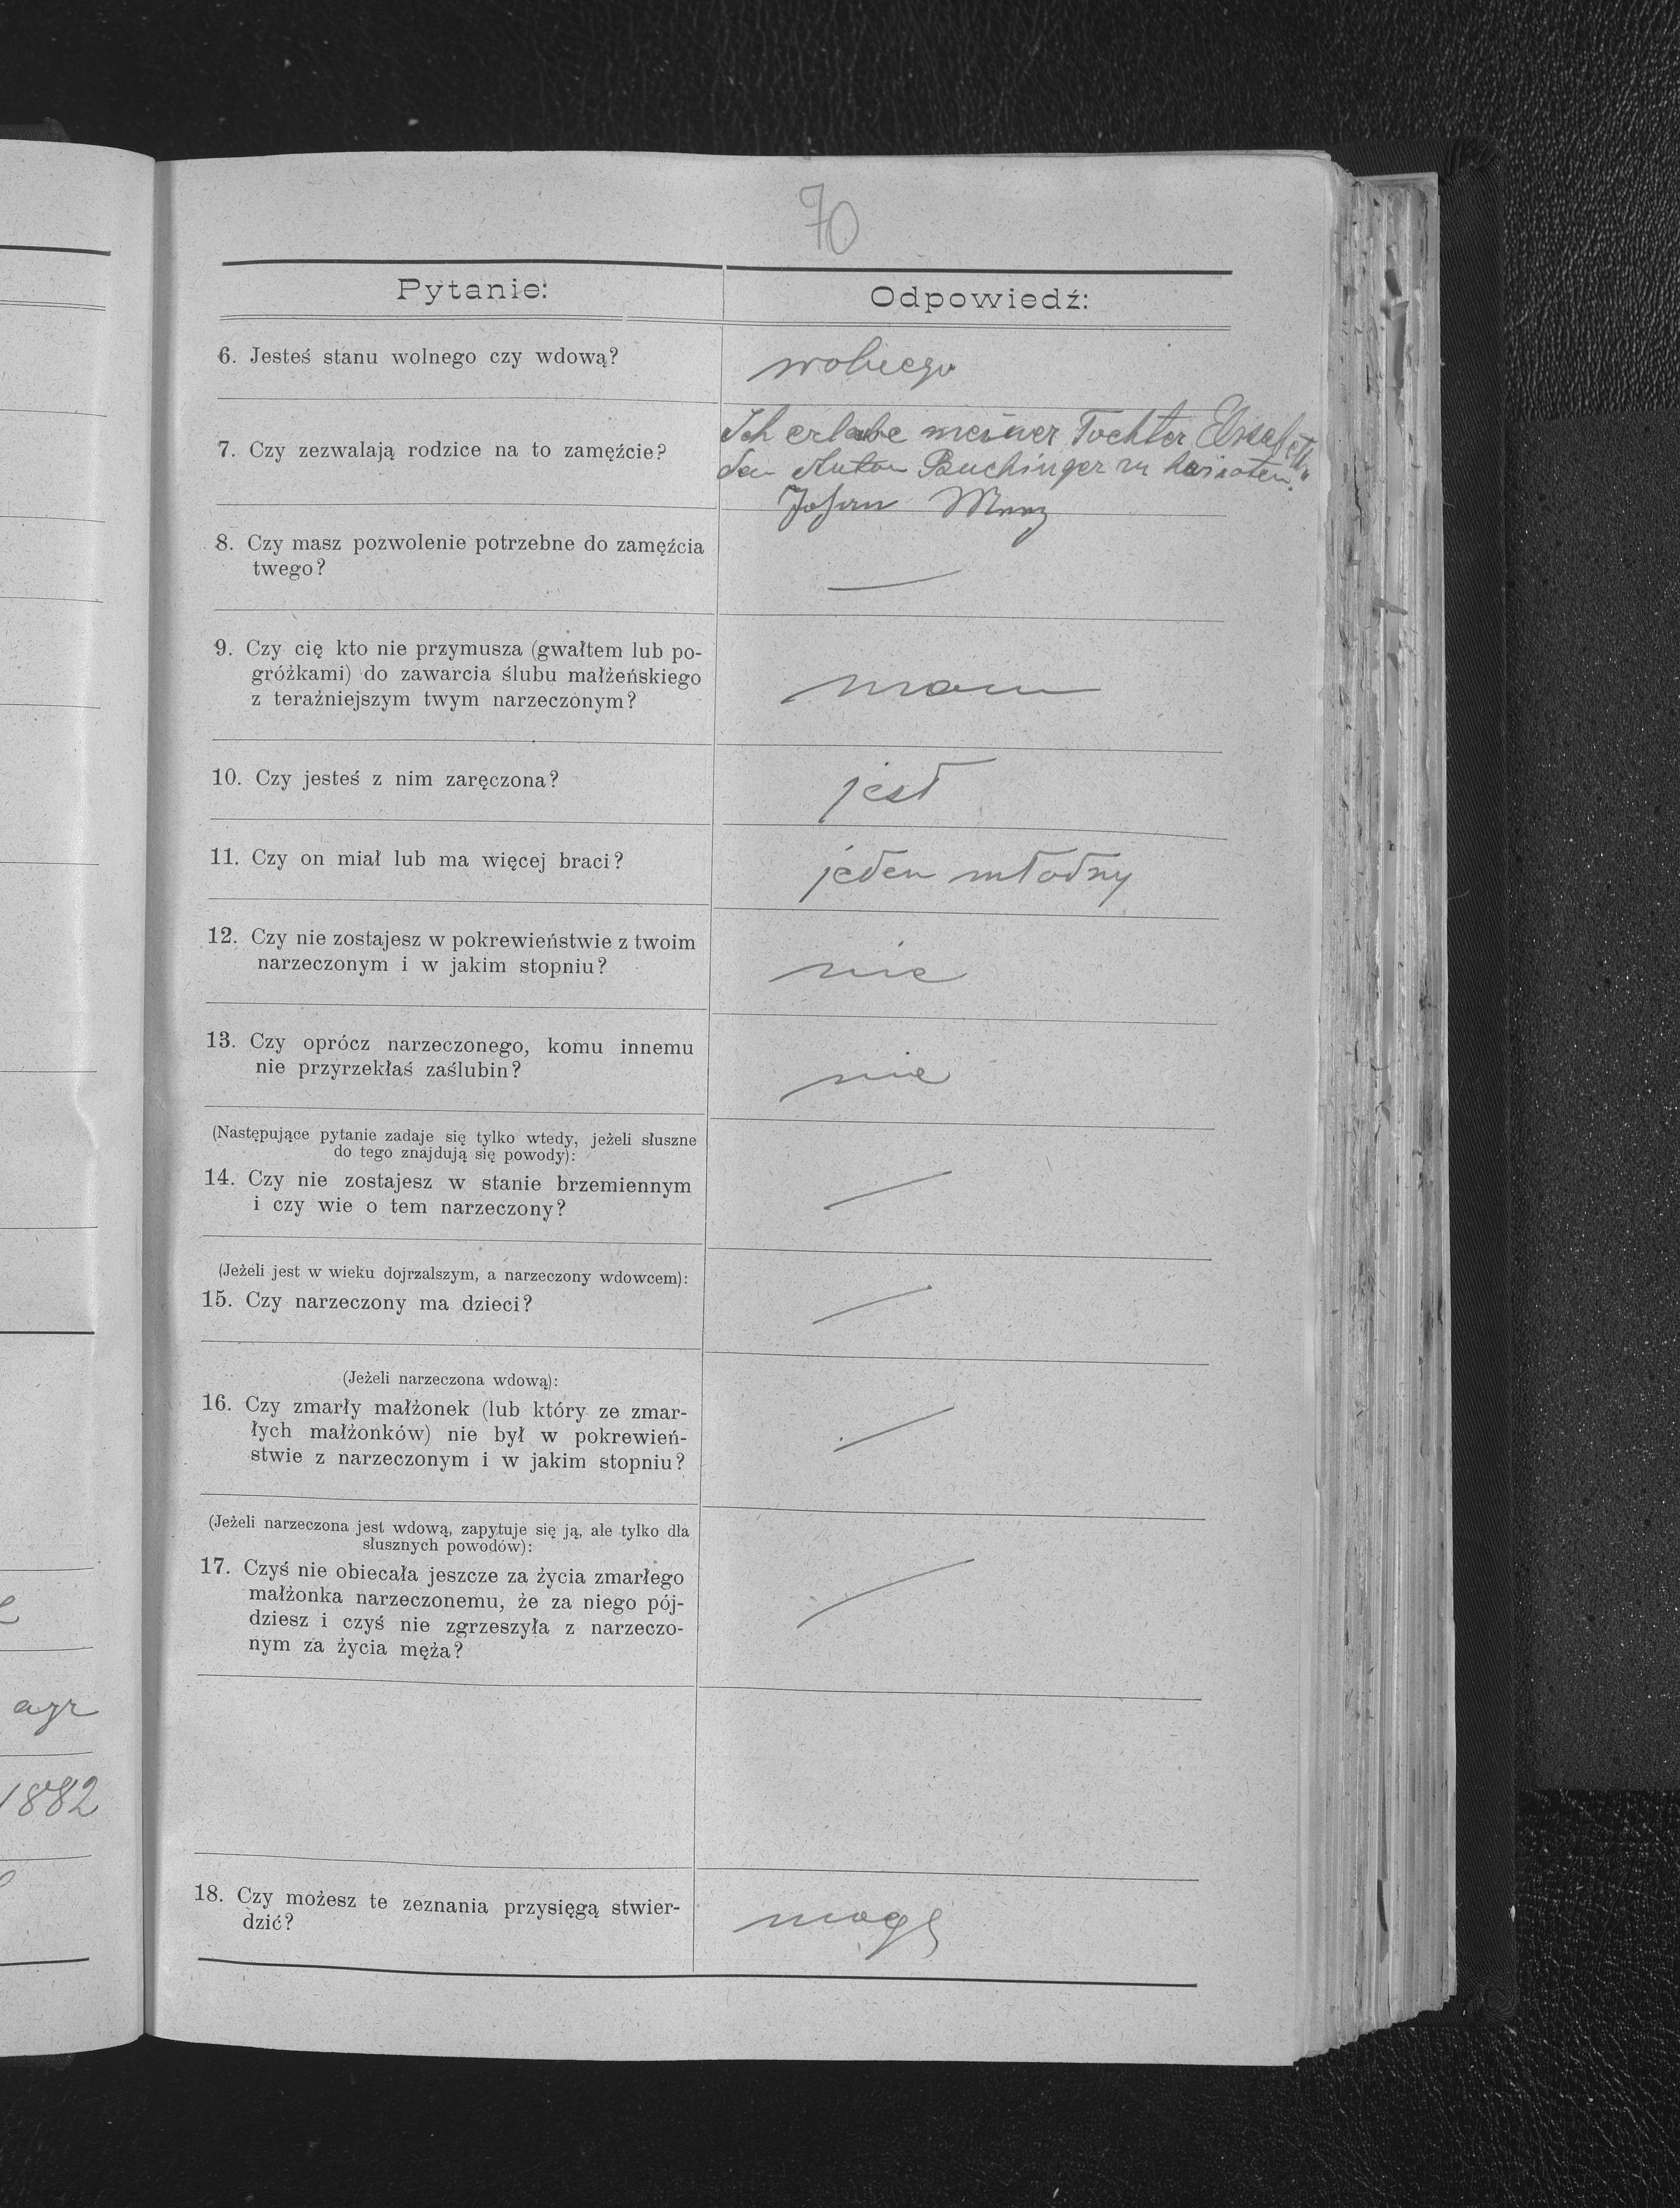 70
Pytanie:
Odpowiedź:
6. Jesteś stanu wolnego czy wdową?
wolnego
7. Czy zezwalają rodzice na to zamęźcie?
Ich erlaube meiner Tochter Elisabeth
den Anton Buchinger zu heiraten.
Johan
8. Czy masz pozwolenie potrzebne do zamęźcia
twego?
—
9. Czy cię kto nie przymusza (gwałtem lub po-
gróżkami) do zawarcia ślubu małżeńskiego
z teraźniejszym twym narzeczonym?
10. Czy jesteś z nim zaręczona?
jest
11. Czy on miał lub ma więcej braci?
jeden młodszy
12. Czy nie zostajesz w pokrewieństwie z twoim
narzeczonym i w jakim stopniu?
nie
13. Czy oprócz narzeczonego, komu innemu
nie przyrzekłaś zaślubin?
nie
(Następujące pytanie zadaje się tylko wtedy, jeżeli słuszne
do tego znajdują się powody):
14. Czy nie zostajesz w stanie brzemiennym
i czy wie o tem narzeczony?
(Jeżeli jest w wieku dojrzalszym, a narzeczony wdowcem):
15. Czy narzeczony ma dzieci?
(Jeżeli narzeczona wdową):
16. Czy zmarły małżonek (lub który ze zmar-
łych małżonków) nie był w pokrewień-
stwie z narzeczonym i w jakim stopniu?
(Jeżeli narzeczona jest wdową, zapytuje się ją, ale tylko dla
słusznych powodów):
17. Czyś nie obiecała jeszcze za życia zmarłego
małżonka narzeczonemu, że za niego pój-
dziesz i czyś nie zgrzeszyła z narzeczo-
nym za życia męża?
1882
18. Czy możesz te zeznania przysięgą stwier-
dzić?
mogę